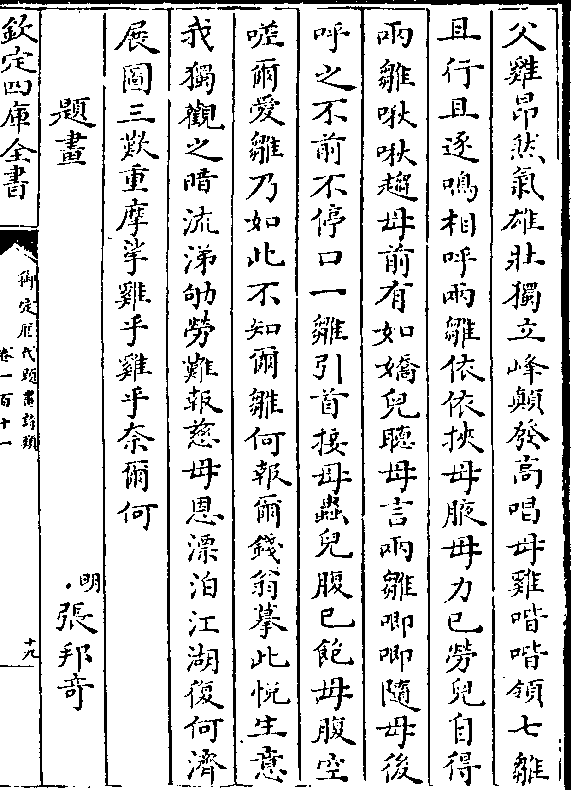 父雞昂然氣雄壯獨立峰顛發高唱母雞喈喈領七雛
且行且逐鳴相呼兩雛依依挾母腋母力已勞兒自得
兩雛啾啾趨母前有如嬌兒聽母言兩雛唧唧隨母後
呼之不前不停口一雛引首接母蟲兒腹已飽母腹空
嗟爾愛雛乃如此不知爾雛何報爾錢翁摹此悅生意
我獨觀之暗流涕劬勞難報慈母恩漂泊江湖復何濟
展圖三歎重摩挲雞乎雞乎奈爾何
題畫
明張邦奇
欽定四庫全書
御定歷代題畫詩類
卷一百十一
十九